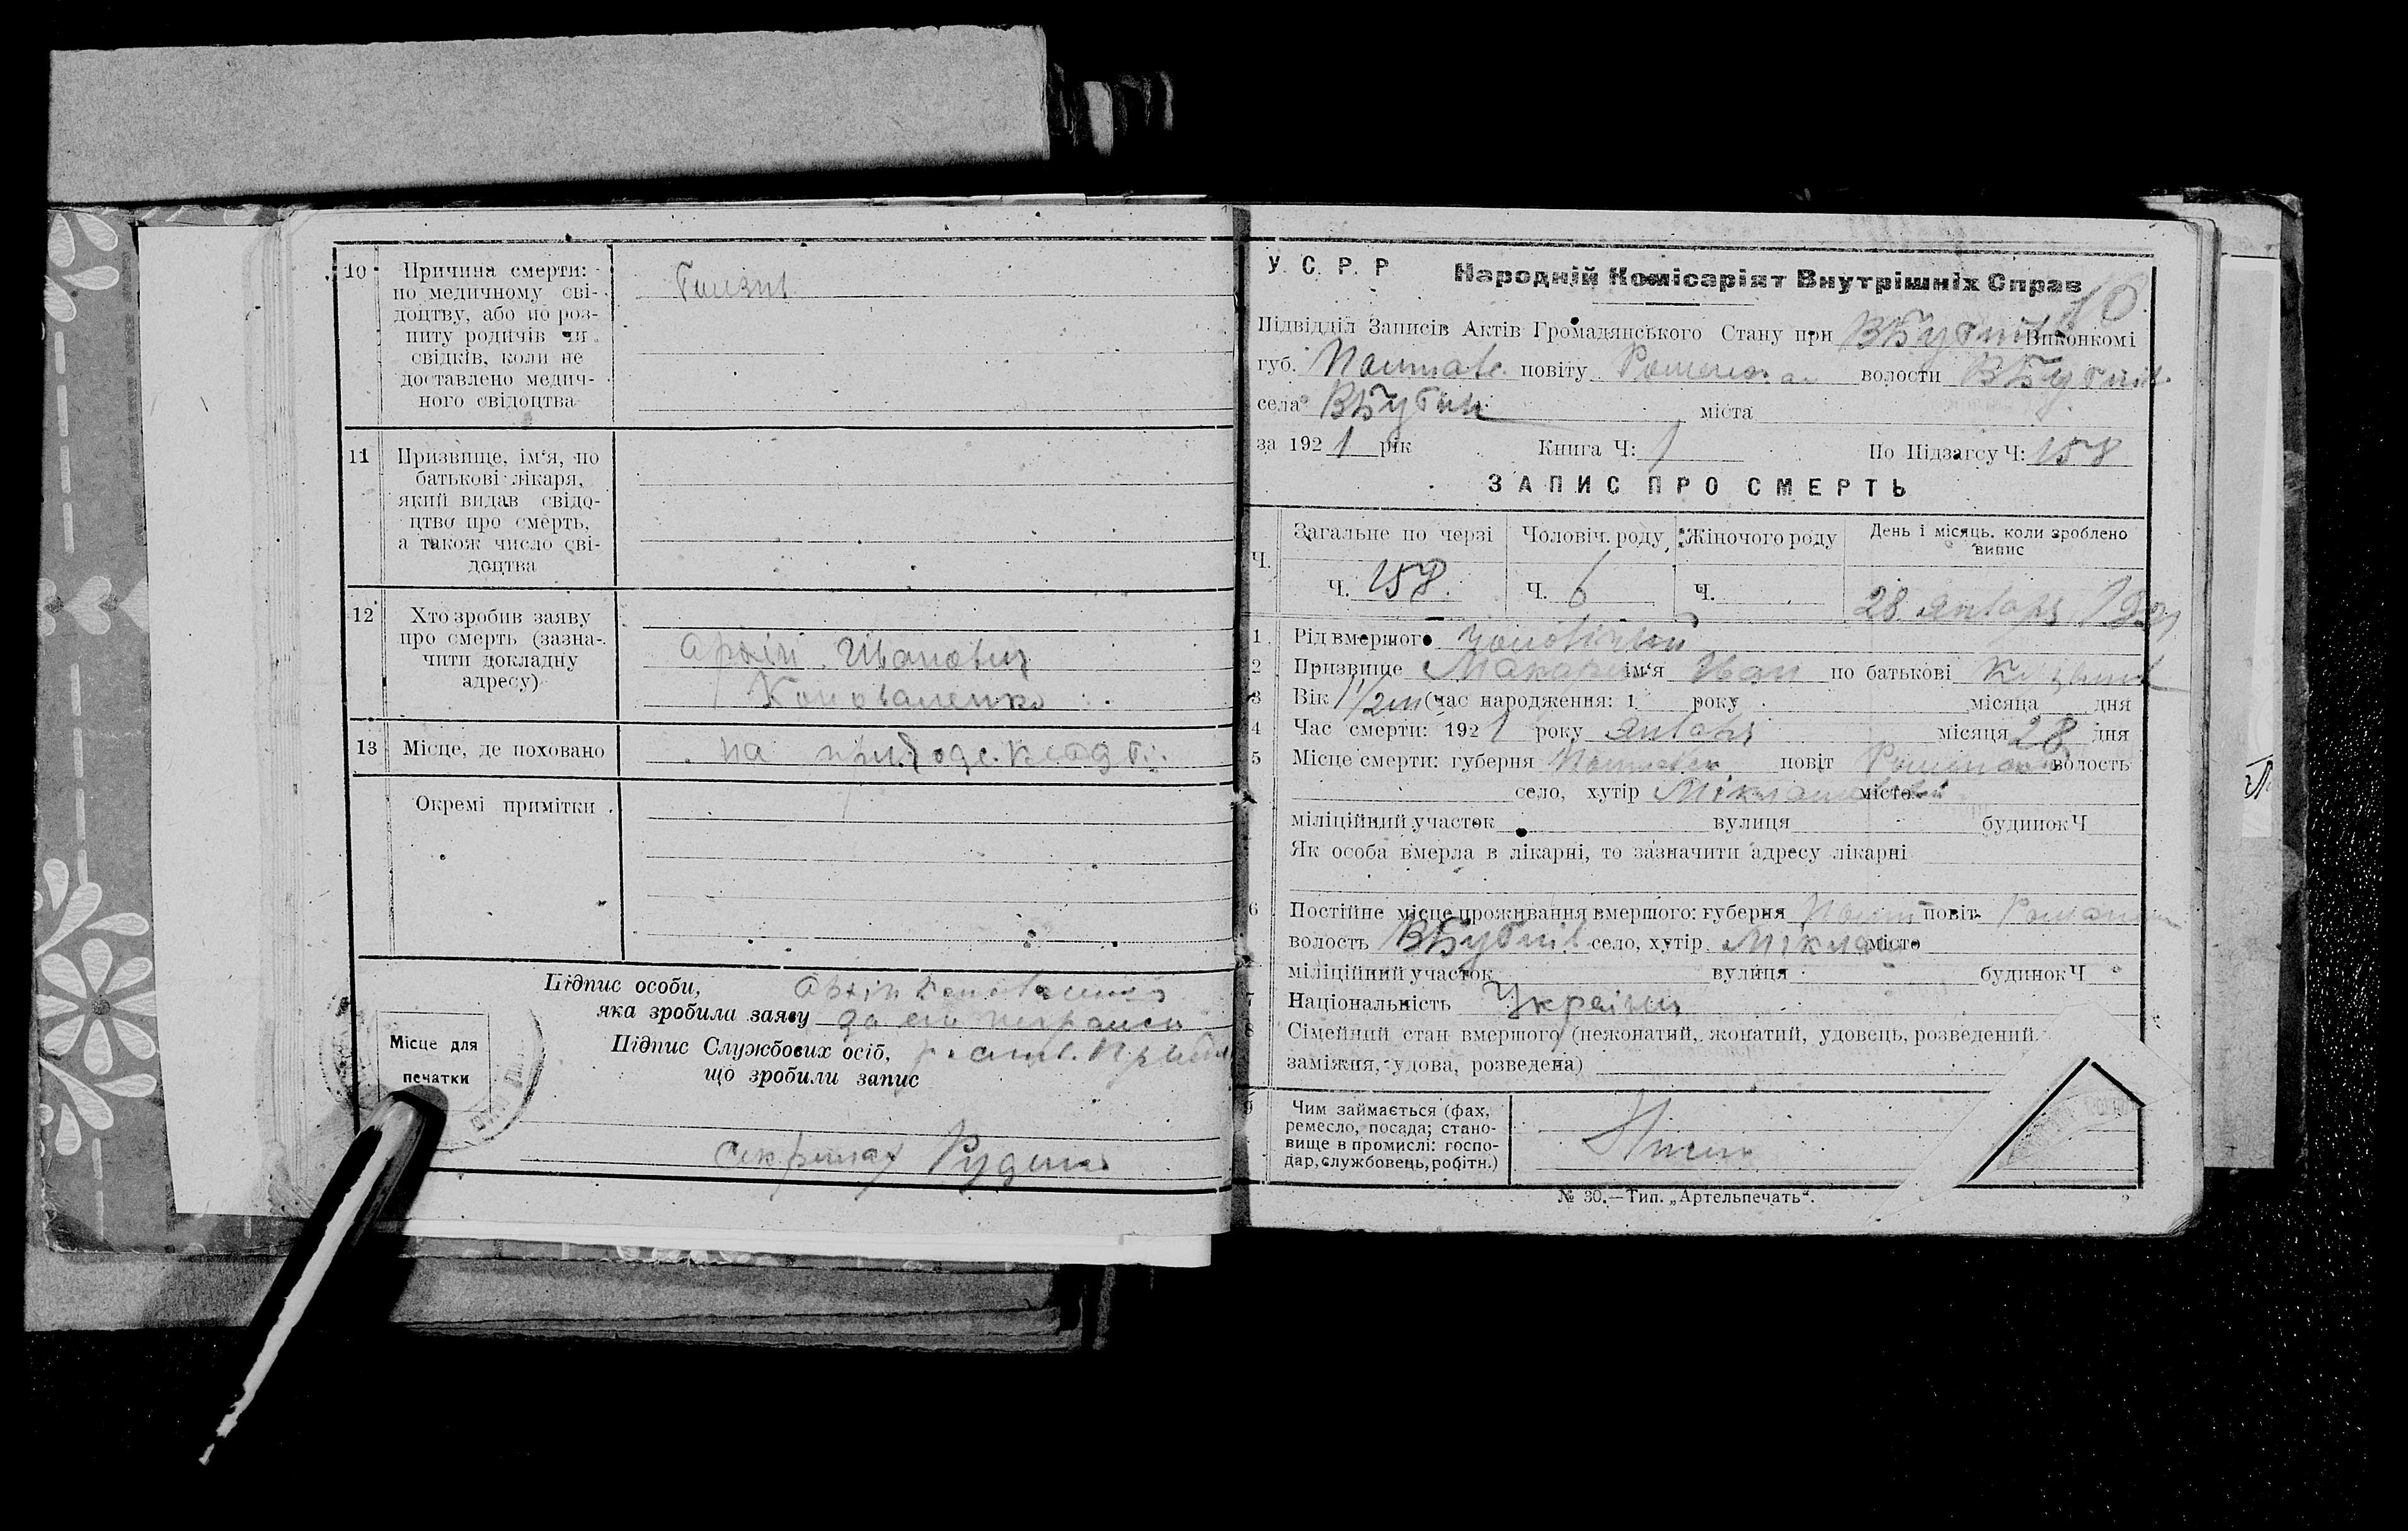 10 Причина смерти:
по медичному сві-
доцтву, або по роз-
питу родичів чи
свідків, коли не
доставлено медич-
ного свідоцтва
11 Призвище, ім'я, по
батькові лікаря,
який видав свідо-
цтво про смерть,
а також число сві-
доцтва
12 Хто зробив заяву
про смерть (зазна-
чити докладну
адресу)
Архіп Іванович
Коноваленко
13 Місце, де поховано
на приход. кладб.
Окремі примітки
Підпис особи,
яка зробила заяву
Архіп Коноваленко
Підпис Службових осіб,
що зробили запис
Місце для
печатки
Секретар Руденко
У. С. Р. Р
Народній Комісаріят Внутрішніх Справ
16
Підвідділ Записів Актів Громадянського Стану при ВБубнів Виконкомі
губ. Полтавс. повіту Роменськ волости ВБубнів.
села ВБубни міста
за 1921 рік Книга Ч: 1 По Підзагсу Ч: 158
ЗАПИС ПРО СМЕРТЬ
Ч. Загальне по черзі Чоловіч. роду Жіночого роду День і місяць. коли зроблено
випис
Ч. 158. Ч. 6 Ч. 28 января 1921
1 Рід вмершого Чоловічий
2 Призвище ім'я Іван по батькові
3 Вік 1 1/2 (час народження: 1 року місяца дня
4 Час смерти: 1921 року января місяця 28 дня
5 Місце смерти: губерня Полтавськ повіт Роменськ волость
село, хутір місто
міліційний участок вулиця будинок Ч
Як особа вмерла в лікарні, то зазначити адресу лікарні
6 Постійне місце проживання вмершого: губерня Полт повіт Роменськ
волость ВБубнів село, хутір місто
міліційний участок вулиця будинок Ч
7 Національність Українц
8 Сімейний стан вмершого (нежонатий, жонатий, удовець, розведений
заміжня, удова, розведена)
9 Чим займається (фах,
ремесло, посада; стано-
вище в промислі: госпо-
дар, службовець, робітн.)
№ 30.—Тип. „Артельпечать".